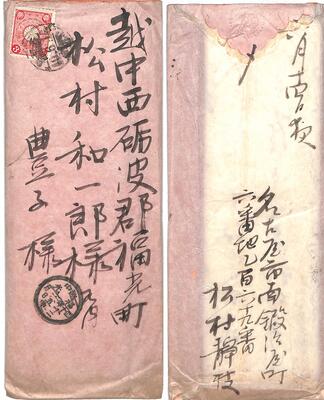 越中西礪波郡福光町
松村和一郎様
豊子様
名古屋市南鍛冶屋町
六番地乙百六十九番
松村静枝